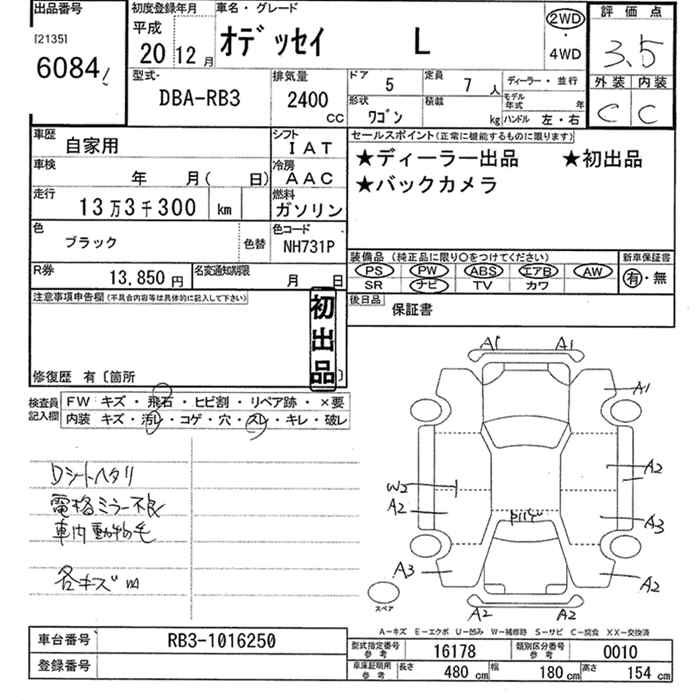 出品番号
[2135]
6084
初度登録年月
平成
20 12月
車名・グレード
オデッセイ L
2WD
・
4WD
評価点
3.5
外装 内装
C C
型式
DBA-RB3
排気量
2400
CC
ドア 5
定員 7 人
形状 ワゴン
積載 kg
ディーラー・並行
モデル年式 年
ハンドル 左・右
車歴 自家用
シフト IAT
車検 年 月( 日)
冷房 AAC
走行 13万3千300 km
燃料 ガソリン
色 ブラック
色替
色コード NH731P
R券 13,850円
名変通知期限 月 日
セールスポイント(正常に機能するものに限ります)
★ディーラー出品 ★初出品
★バックカメラ
装備品(純正品に限り○をつけてください)
PS PW ABS エアB AW
SR ナビ TV カワ
新車保証書
有・無
後日品 保証書
注意事項申告欄(不具合内容等は具体的に記入して下さい)
初出品
修復歴 有〔箇所 〕
検査員記入欄
FW キズ・飛石・ヒビ割・リペア跡・×要
内装 キズ・汚レ・コゲ・穴・スレ・キレ・破レ
Dシートヘタリ
電格ミラー不良
車内動物毛
各キズm
A1 A1
A1
A2
W2
A2
A3
A3
A2
A2 A2
スペア
A－キズ E－エクボ U－凹み W－補修跡 S－サビ C－腐食 XX－交換済
車台番号 RB3-1016250
登録番号
型式指定番号参考 16178
類別区分番号参考 0010
車庫証明用参考 長さ 480cm 幅 180cm 高さ 154cm